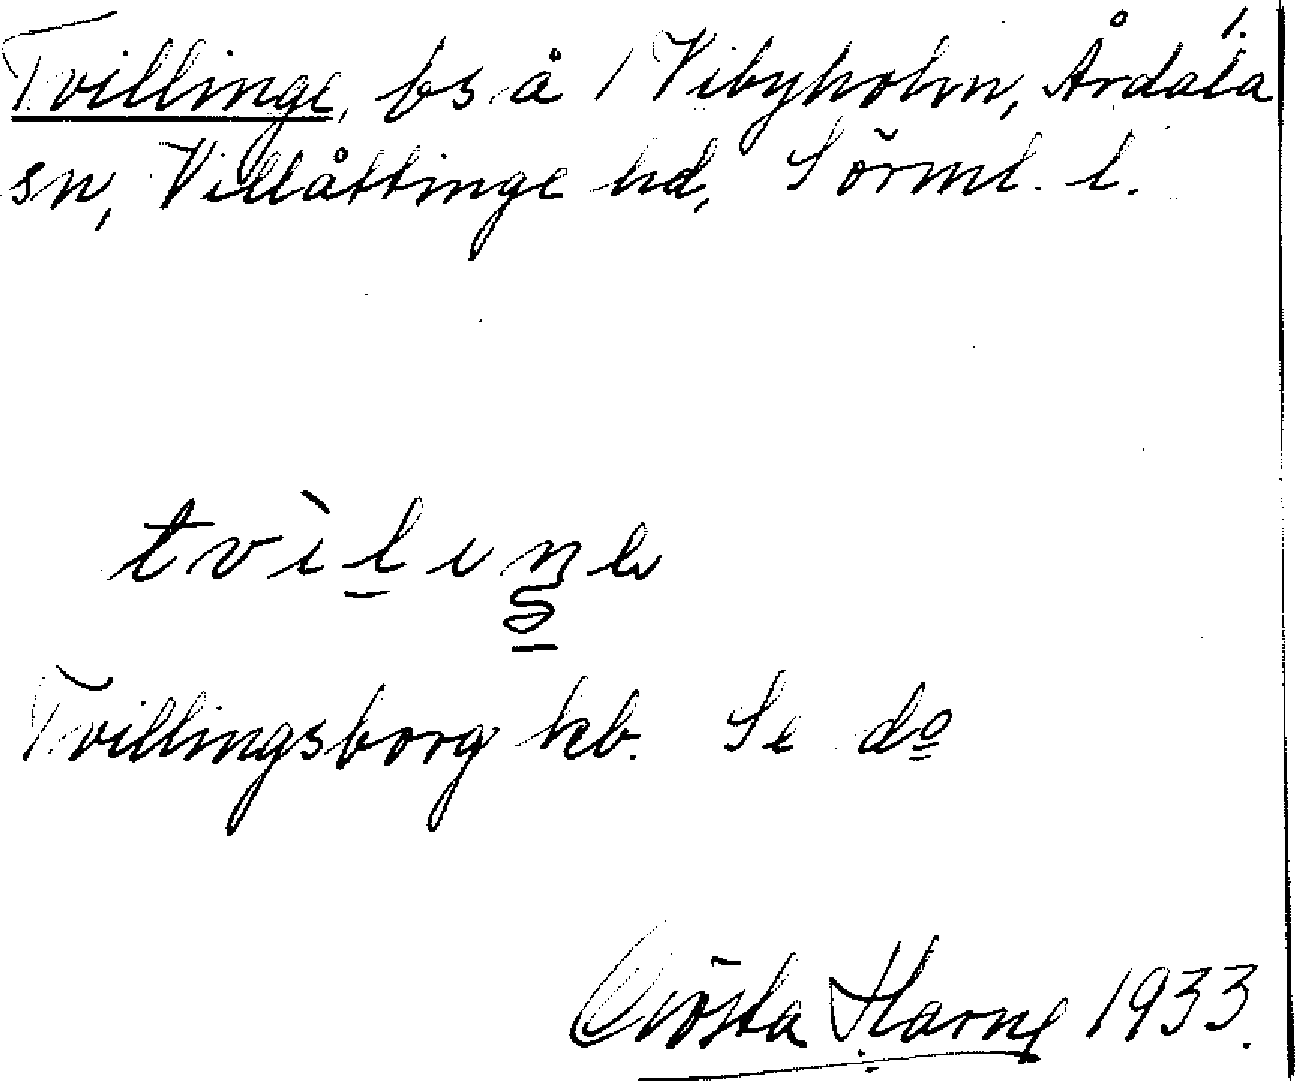 1.
Tvillinge, bs å 1 Vibyholm, Årdala
sn, Villåttinge hd, Sörml. l.
tvìlıŋe
Tvillingsborg kb. Se do
Gösta Harne 1933.